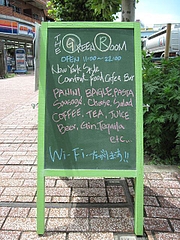 THE GREEN ROOM
OPEN 11:00~22:00
New York Style
Comfort Food Cafe & Bar
PANINI, BAGLE, PASTA
Sausage, Cheese, Salad
COFFEE, TEA, JUICE
Beer, Gin, Tequila
etc...
Wi-Fi